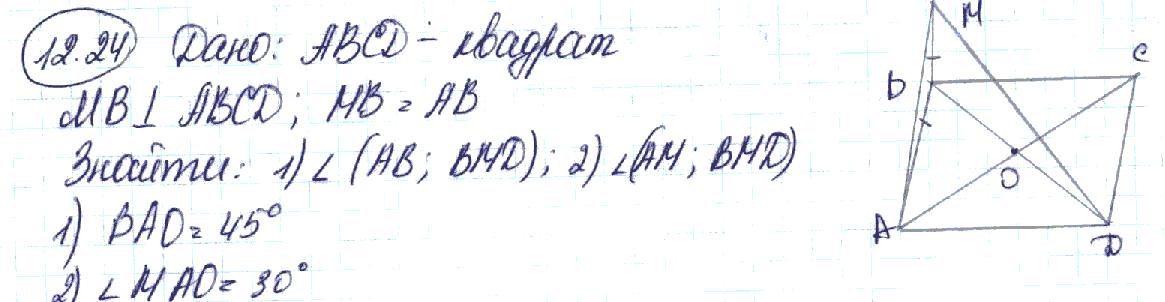 12.24 Дано: ABCD - квадрат
MB⊥ ABCD; MB = AB
Знайти: 1) ∠ (AB; BMD); 2) ∠(AM; BMD)
1) BAO = 45°
2) ∠ MAO = 30°
M
B
C
O
A
D